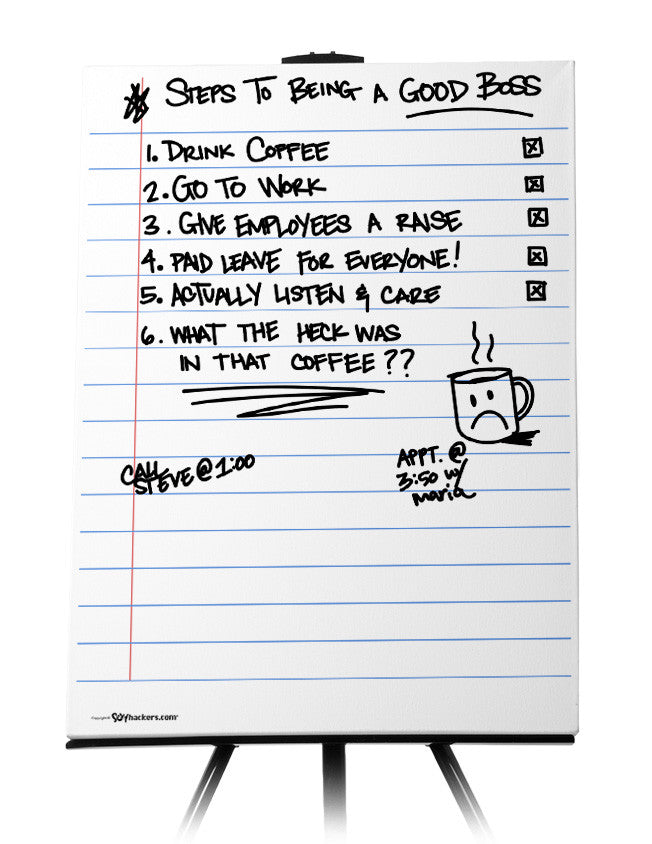 STEPS TO BEING A GOOD BOSS
1. DRINK COFFEE
2. GO TO WORK
3. GIVE EMPLOYEES A RAISE
4. PAID LEAVE FOR EVERYONE!
5. ACTUALLY LISTEN & CARE
6. WHAT THE HECK WAS
IN THAT COFFEE??
CALL
STEVE @ 1:00
APPT. @
3:50 w/
maria
Copyright© SOYhackers.com